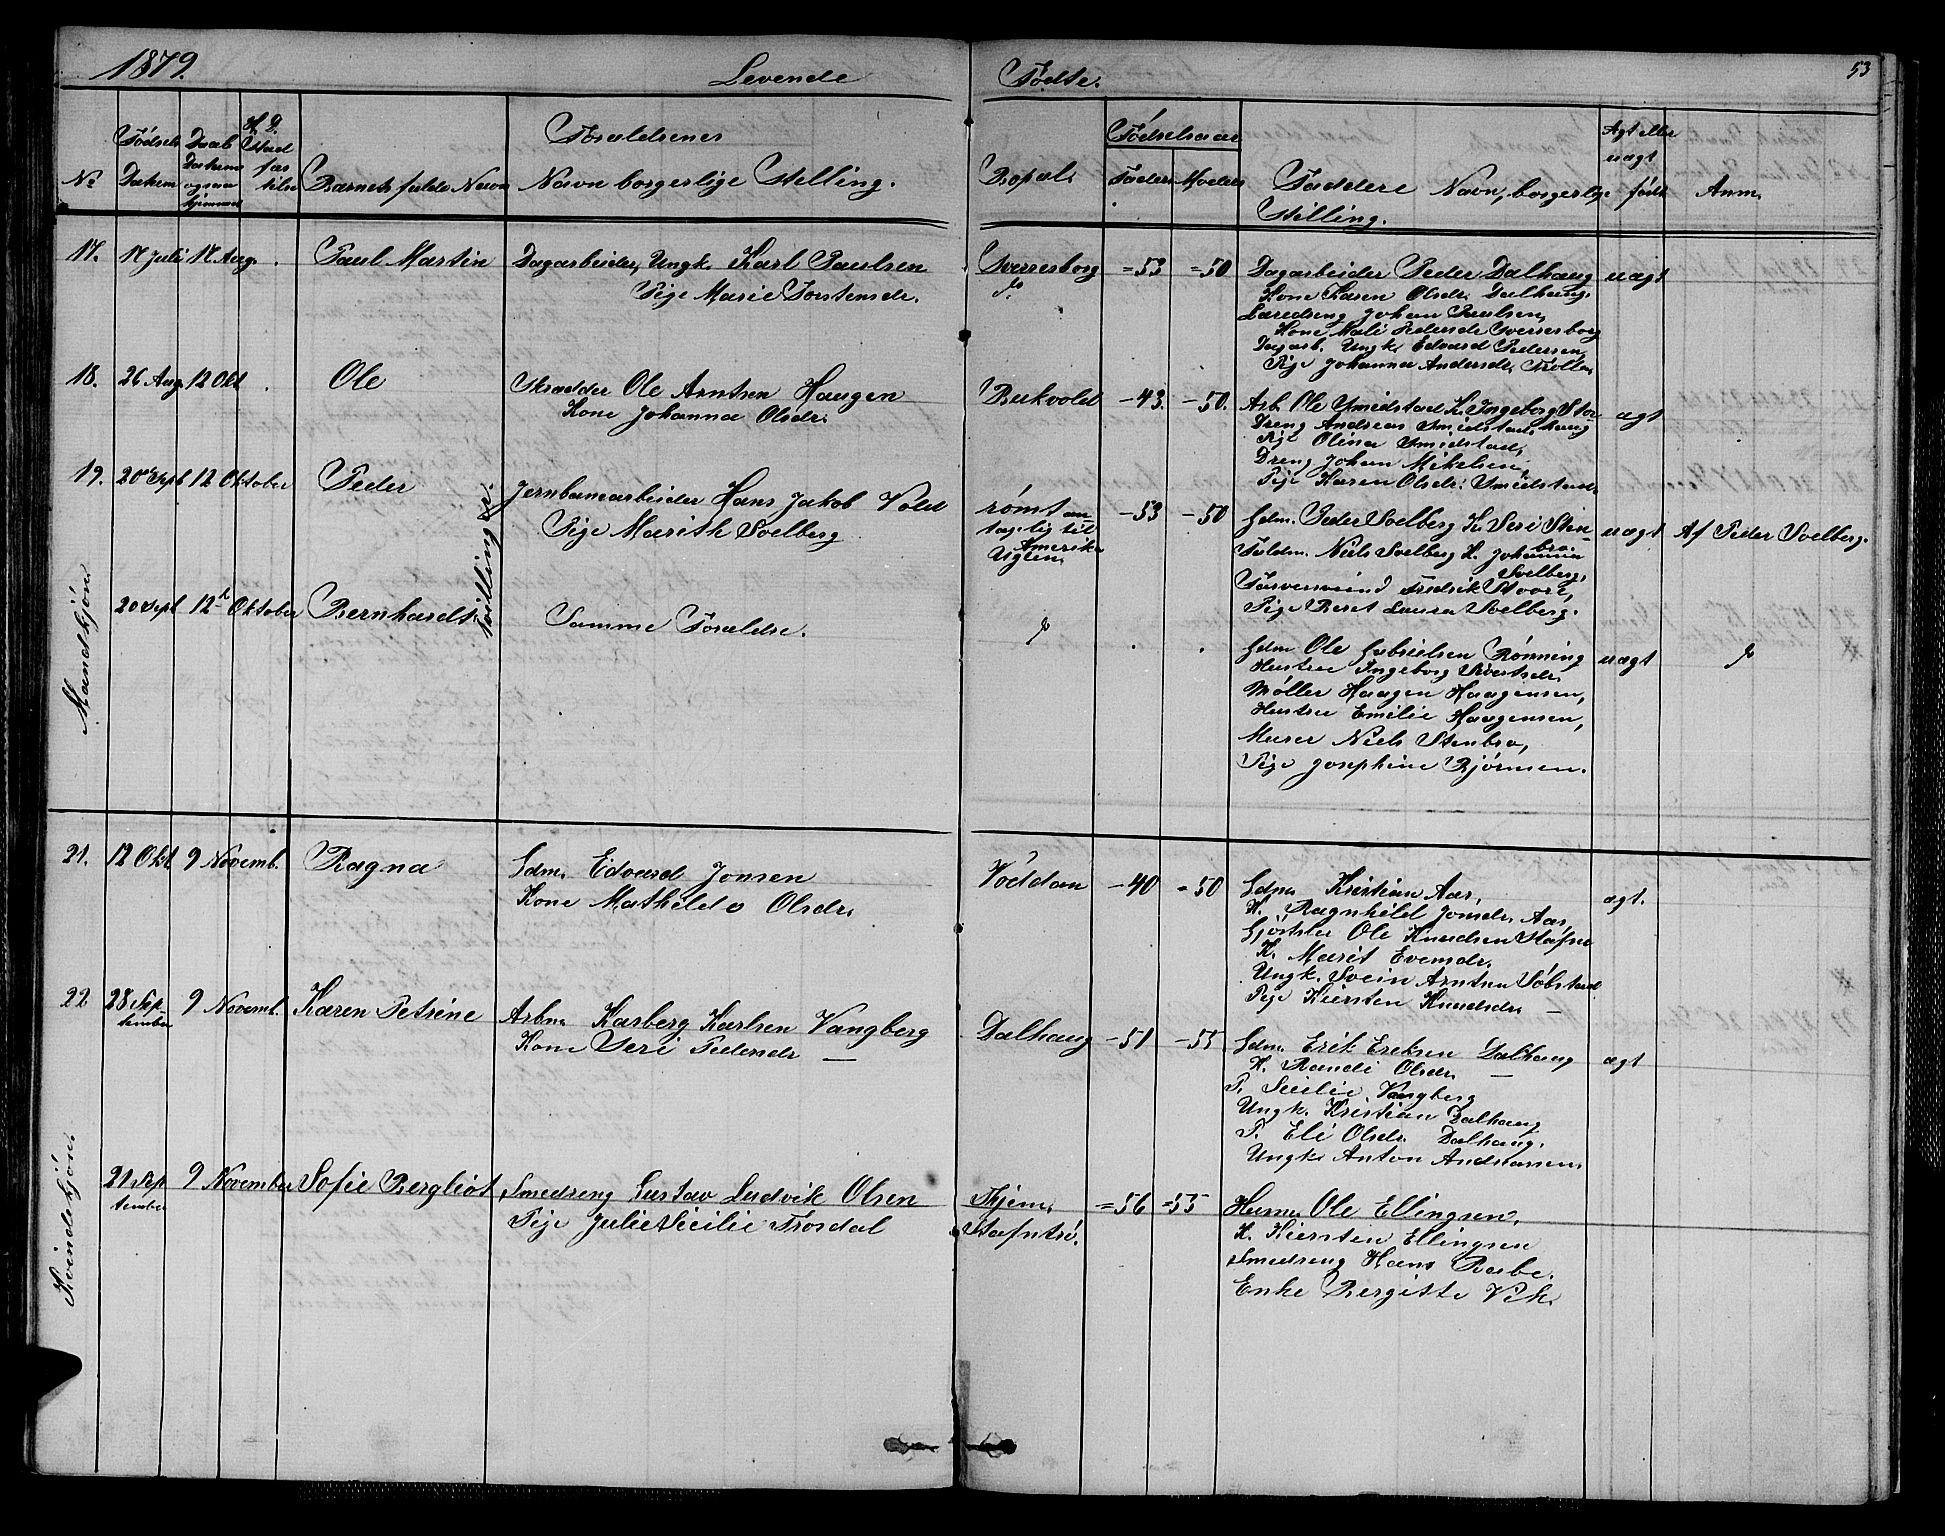 1879.
Levende
Fødte.
53
No
Fødsels Datum
Daab Datum og om hjemmed
H. D. Stad fæstilse
Barnets fulde Navn
Forældrenes Navn borgerlige Stilling.
Bopæl.
Fødselsaar
Faders
Moders
Faddere Navn, borgerlige Stilling.
Ægt eller uægt født
Anm.
Mandkjøn.
17. 17 Juli 17 Aug. Paul Martin
Dagarbeider, Ungk. Karl Paulsen
Pige Marie Torstensdr.
Sverresborg =53 =50
Dagarbeider Peder Dalhaug uægt
Kone Karen Olsdr. Dalhaug.
Læredreng Johan Paulsen,
Kone Mali Pedersdr Sverresborg
Dagarb. Ungk. Edvard Pedersen,
Pige Johanna Andersdr. Trolla.
18. 26 Aug 12 Okt Ole
Skrædder Ole Arntsen Haugen
Kone Johanna Olsdr.
Bukvold -43. -50.
Arb. Ole Smidstad K. Ingeborg Stor- ægt
Dreng Andreas Smidstad, haug
Pige Olina Smidstad,
Dreng Johan Mikelsen,
Pige Karen Olsdr. Smidstad.
19. 20de Sept 12 Oktober Peder
Jernbanearbeider Hans Jakob Vold
Pige Marith Solberg
Tvillinger.
rømt an
tagelig til
Amerika
Uglen,
-53 -50
Gdm. Peder Solberg K. Seri Sten- uægt Af Peder Solberg.
bro.
Feldm. Niels Solberg K. Johanna
Solberg,
Farversvend Fredrik Stoore,
Pige Beret Laura Solberg.
20 Sept 12te Oktober Bernhardt
Samme Forældre.
Gdm Ole Gabrielsen Rønning uægt
Hustru Ingeborg Sivertsdr.
Møller Haagen Haagensen,
Hustru Emilie Haagensen,
Murer Niels Stenbro,
Pige Josephine Bjørnsen.
Kvindekjøn.
21. 12 Okt. 9 Novemb. Ragna
Gdm. Edvard Jonsen
Kone Mathilde Olsdr.
Vøddan -40 =50
Gdm Kristian Aas, ægt.
K. Ragnhild Jonsdr. Aas,
Gjørtler Ole Knudsen Stafne
K. Marit Evensdr.
Ungk. Svein Arntsen Søbstad
Pige Kiersten Knudsdr. —
22 28 Sep-
tember 9 Novemb. Karen Petrine
Arbm. Karberg Karlsen Vangberg
Kone Seri Pedersdr —
Dalhaug -51 -55
Gdm. Erik Eriksen Dalhaug ægt
K. Randi Olsdr. —
P. Sicilie Vangberg
Ungk. Kristian Dalhaug
P. Eli Olsdr. Dalhaug.
Ungk. Anton Andreassen.
21 Sep
tember 9 November Sofie Bergliot
Smedreng Gustav Ludvik Olsen
Pige Julie Sicilie Frosdal
Thjem.
Stafntrø.
=56 -55
Husm. Ole Ellingsen,
K. Kiersten Ellingsen
Smedreng Hans Rabe.
Enke Bergitte Vik.